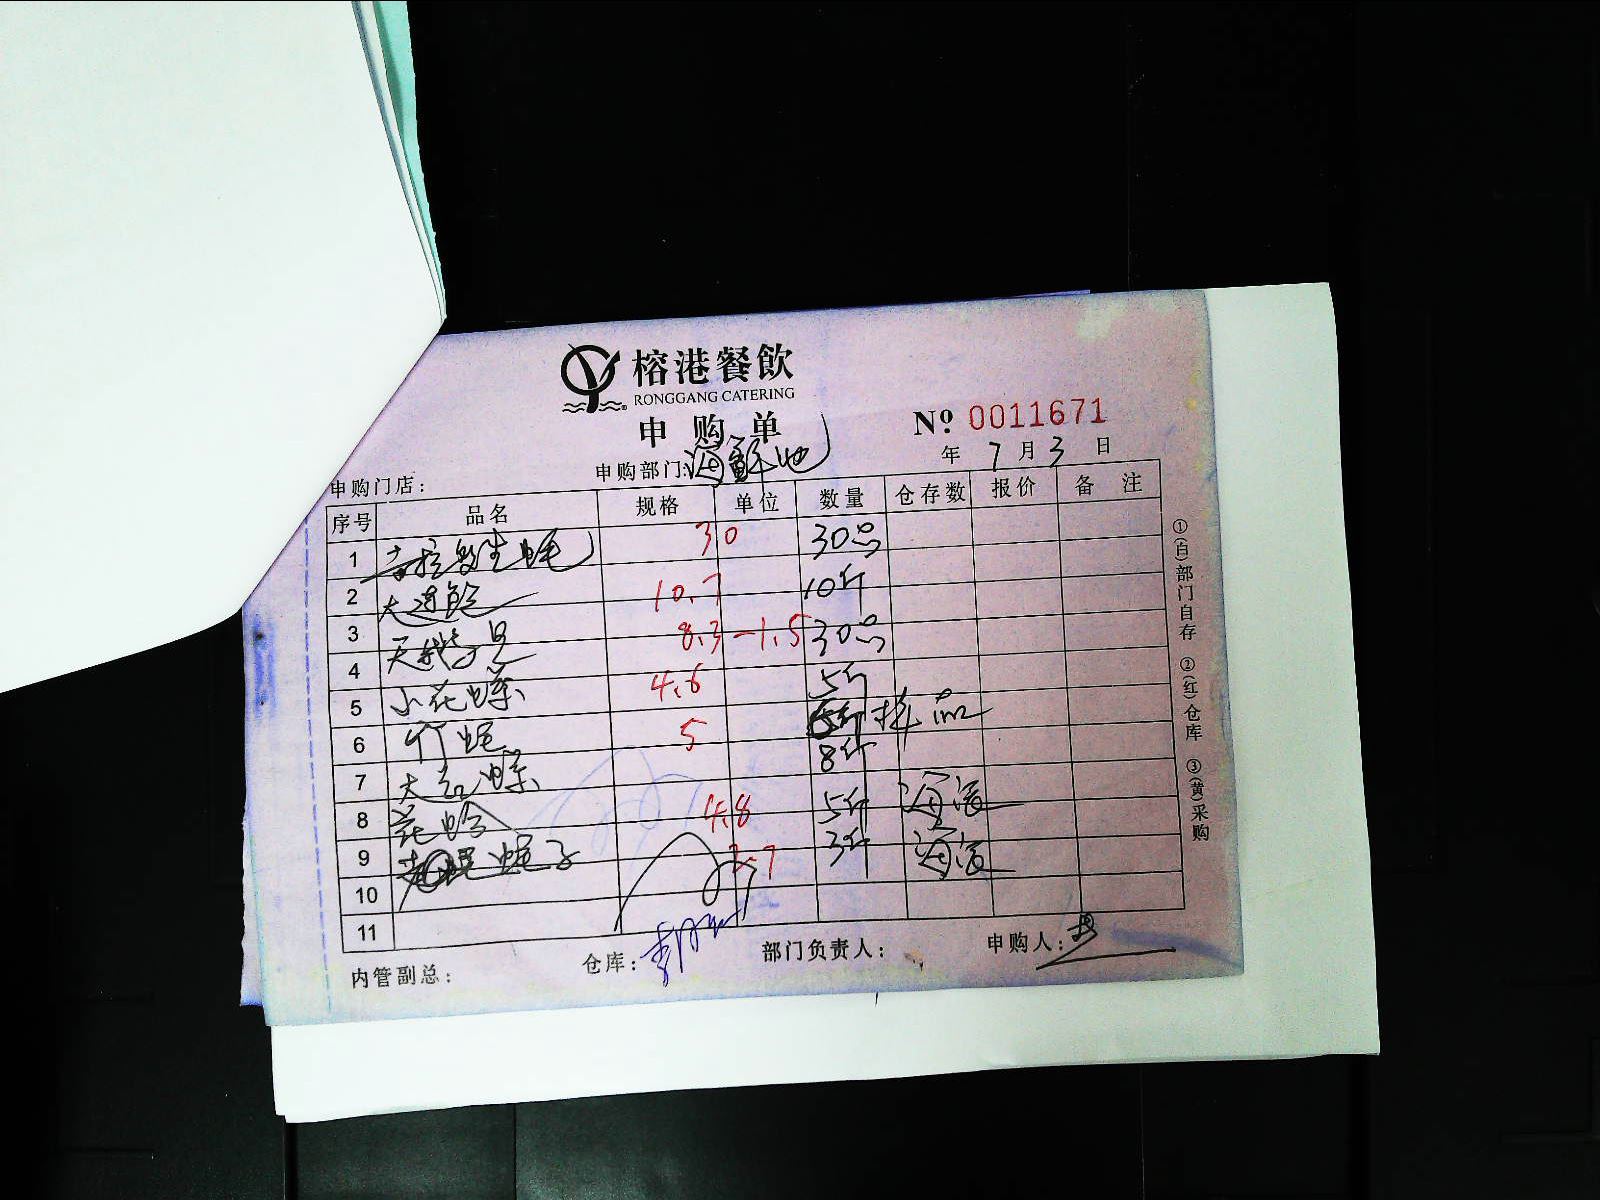 榕港餐飲
RONGGANG CATERING
申购单
Nº 0011671
年 7 月 3 日
申购门店： 申购部门：海鲜池
序号 品名 规格 单位 数量 仓存数 报价 备注
1 吉拉多生蚝 30 30只
2 大连鲍 10.7 10斤
3 天鹅蛋贝 8.3 -1.5 30只
4 小花螺 4.6 5斤
5 竹蛏 5 5斤 样品
6 大红螺 8斤
7 花蛤 4.8 5斤 海渡
8 蛏子 2.7 3斤 海渡
9
10
11
内管副总： 仓库： 部门负责人： 申购人：
①(白)部门自存 ②(红)仓库 ③(黄)采购